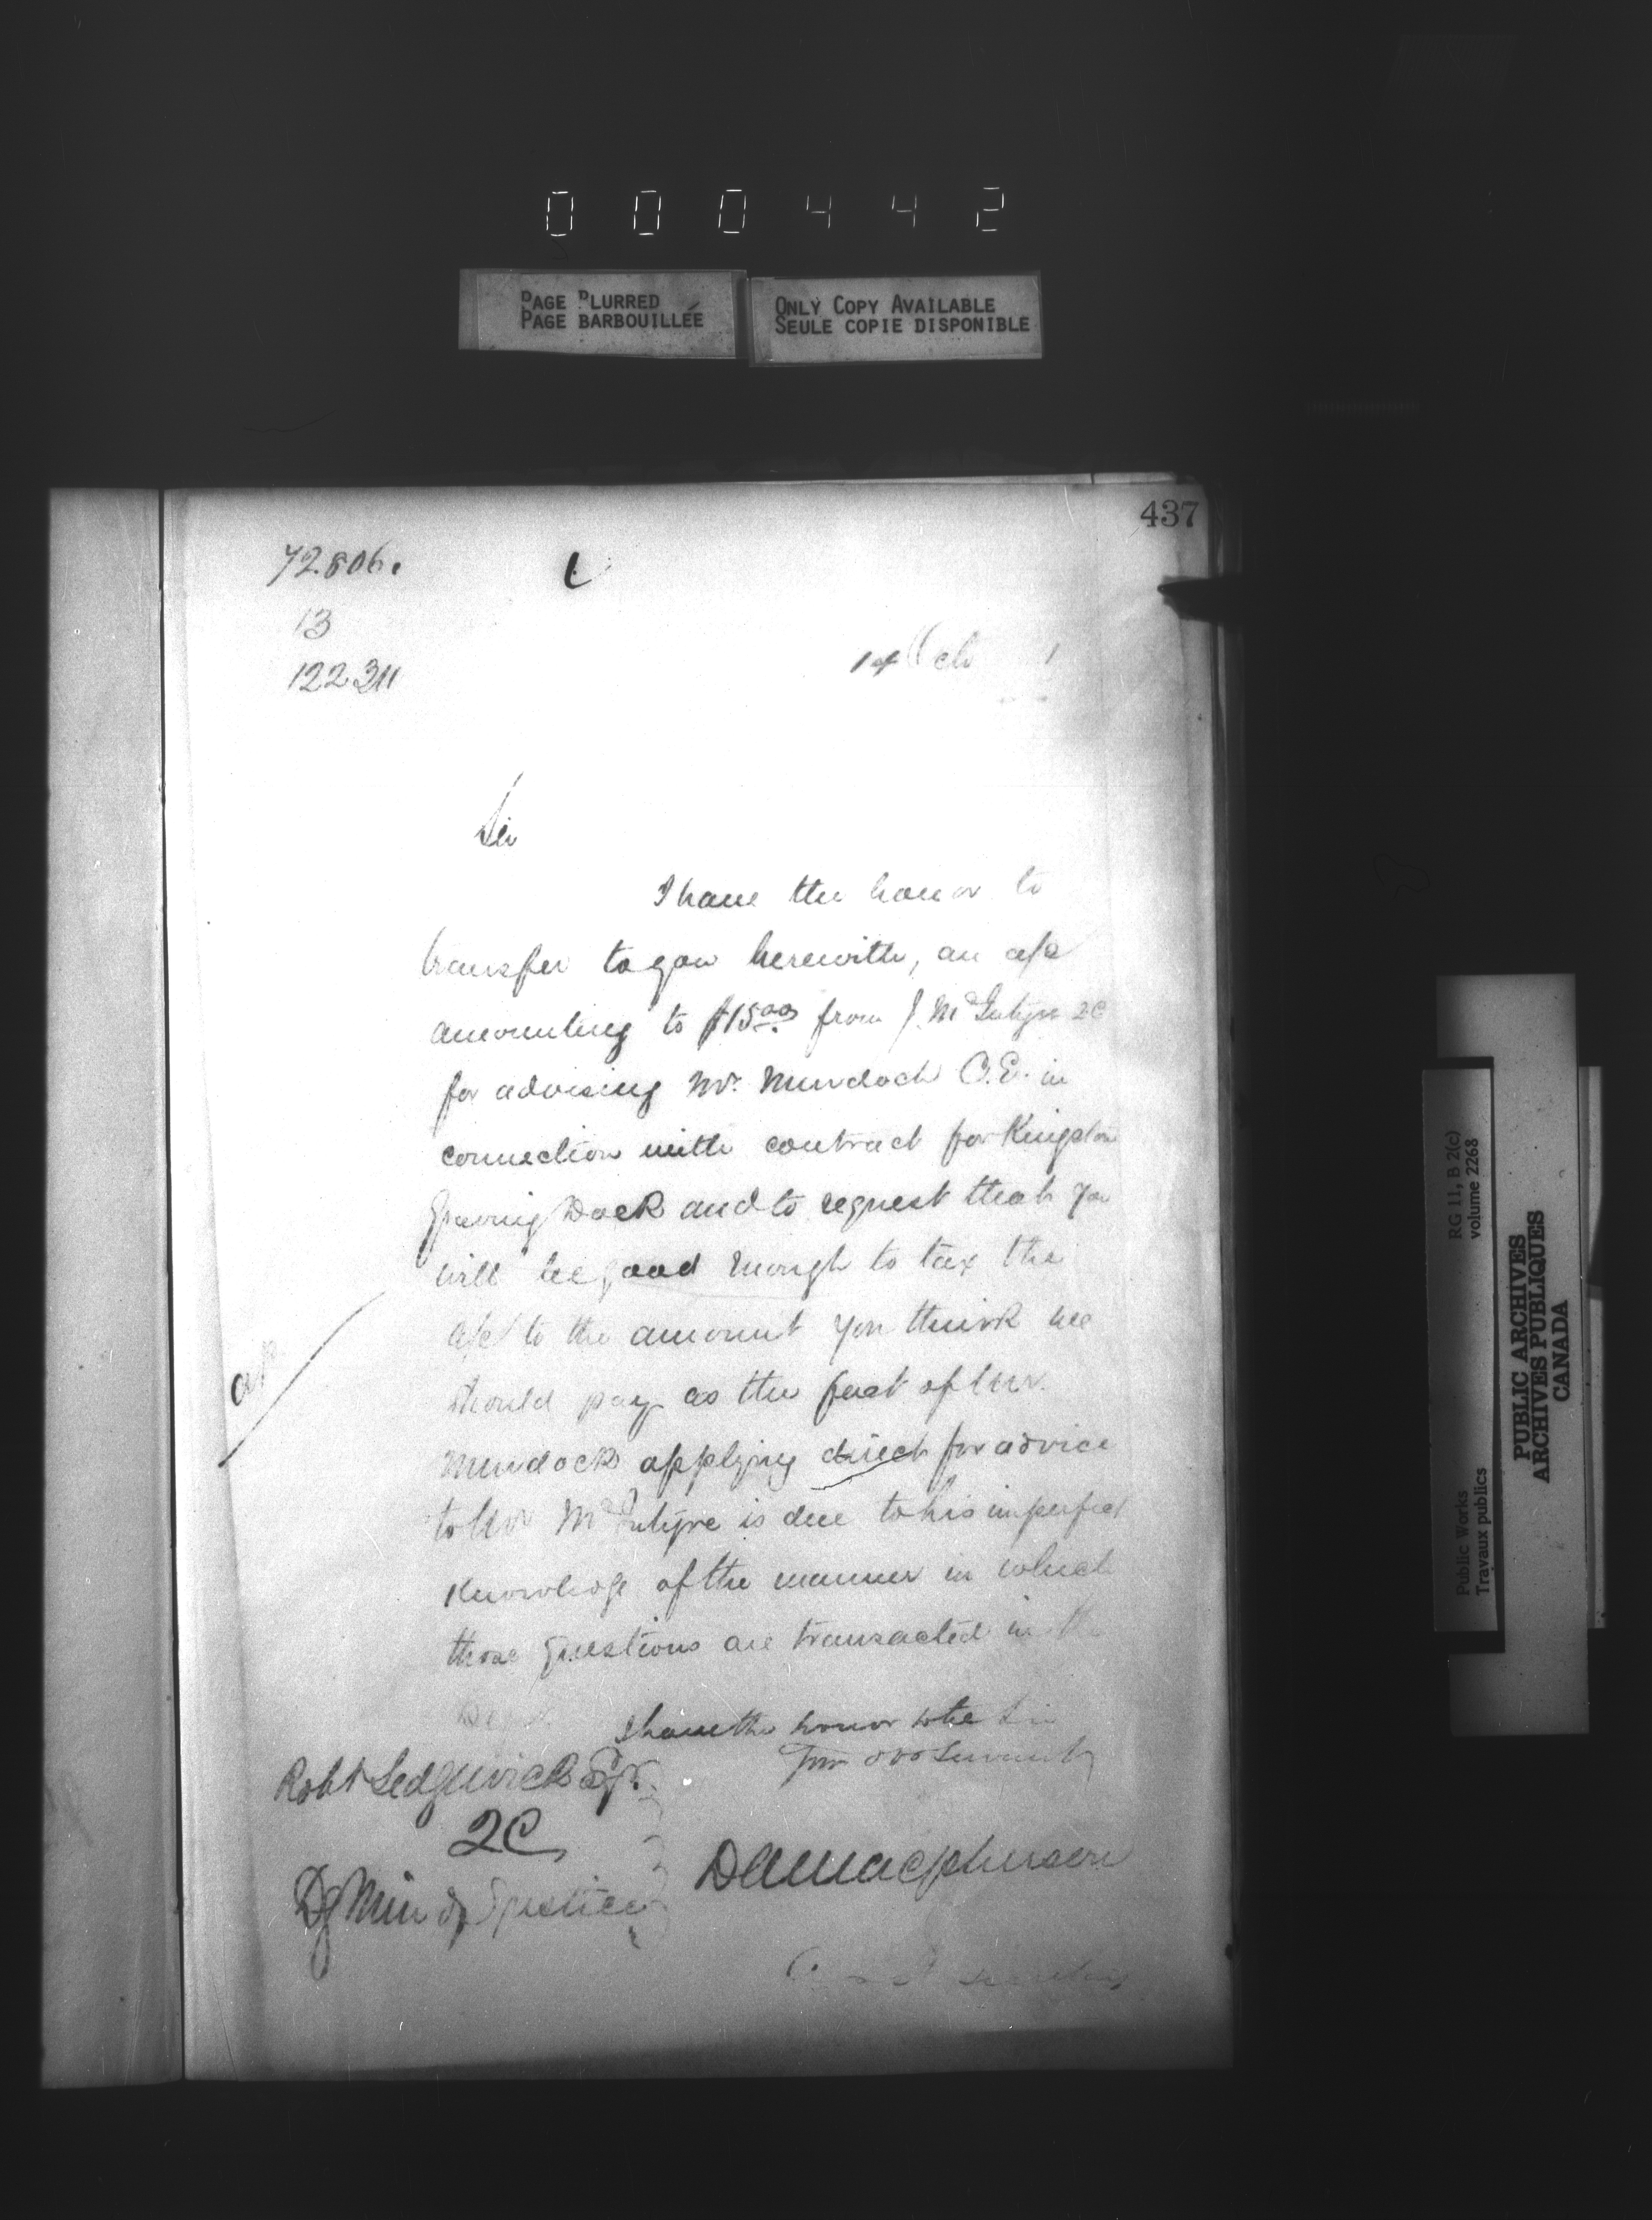 000442
PAGE BLURRED
PAGE BARBOUILLÉE
ONLY COPY AVAILABLE
SEULE COPIE DISPONIBLE
437
72806.
13
122311
14 Oct 1
Sir
I have the honor to
transfer to you herewith, an a/c
amounting to $15.00 from J. McIntyre QC
for advising Mr. Murdoch C.E. in
connection with contract for Kingston
Graving Dock and to request that you
will be good enough to tax the
a/c to the amount you think we
should pay as the fact of Mr.
Murdock applying direct for advice
to Mr McIntyre is due to his imperfect
knowledge of the manner in which
those questions are transacted in the
Dept.
I have the honor to be Sir
Your obt Servant
Robt Sedgwick Esqr.
QC
Dy Min of Justice
D A Macpherson
Secretary
RG 11, B 2(c)
volume 2268
Public Works
Travaux publics
PUBLIC ARCHIVES
ARCHIVES PUBLIQUES
CANADA